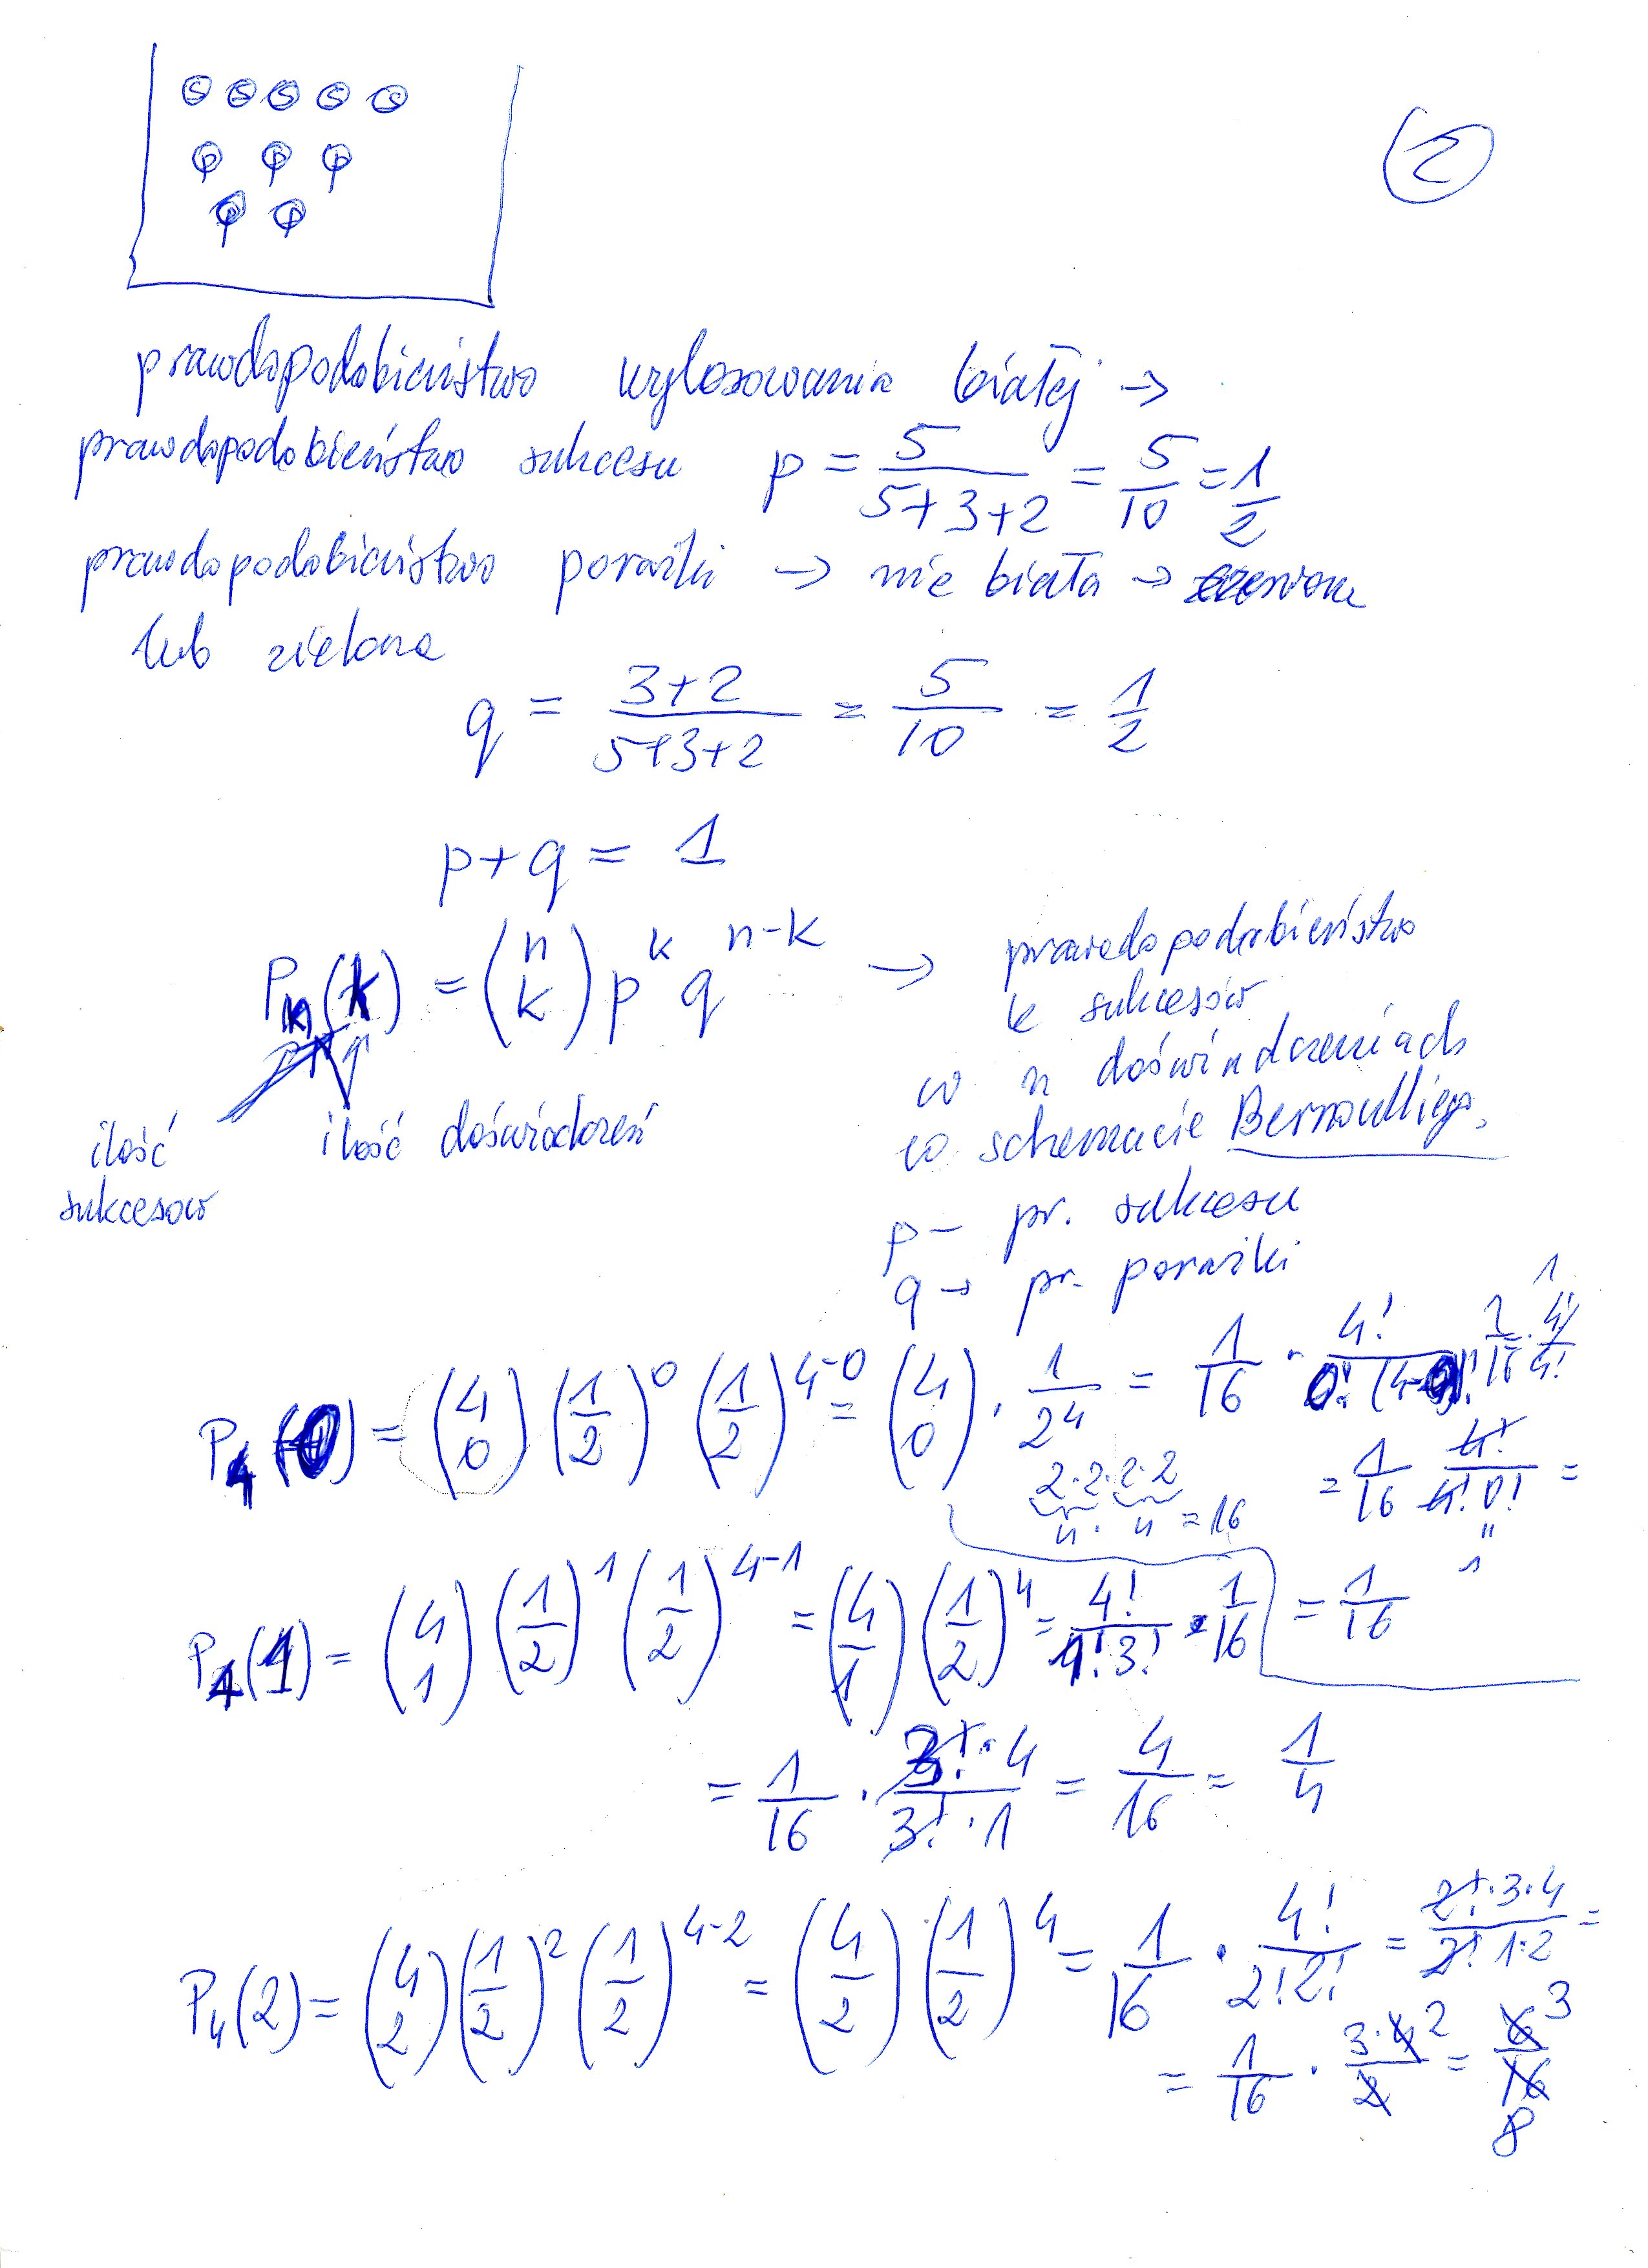 S S S S S
P P P
P P
2
prawdopodobieństwo wylosowania białej →
prawdopodobieństwo sukcesu p = 5/(5+3+2) = 5/10 = 1/2
prawdopodobieństwo porażki → nie biała → czerwona
lub zielona
q = (3+2)/(5+3+2) = 5/10 = 1/2
p+q = 1
Pn(k) = (n k) p^k q^(n-k) → prawdopodobieństwo
k sukcesów
w n doświadczeniach
w schemacie Bernoulliego.
ilość doświadczeń
ilość
sukcesow
p – pr. sukcesu
q → pr. porażki
P4(0) = (4 0) (1/2)^0 (1/2)^(4-0) = (4 0) · 1/2^4 = 1/16 · 4!/(0!(4-0)!) 1/16 · 4!/4!
1
2·2·2·2
4 · 4 = 16
= 1/16 4!/(4! 0!) =
"
1
= 1/16
P4(1) = (4 1) (1/2)^1 (1/2)^(4-1) = (4/1) (1/2)^4 = 4!/(1! 3!) · 1/16
= 1/16 · (3!·4)/(3!·1) = 4/16 = 1/4
P4(2) = (4 2) (1/2)^2 (1/2)^(4-2) = (4/2) (1/2)^4 = 1/16 · 4!/(2! 2!) = (2!·3·4)/(2! 1·2) =
= 1/16 · (3·4 2)/2 = 6/16 3
8